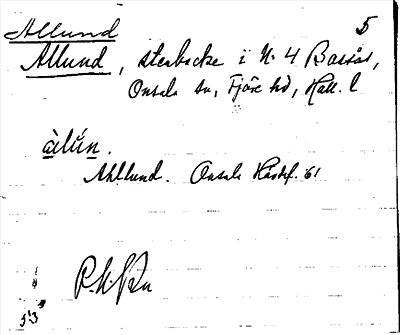 Allund
5
Allund, stenbacke i N. 4 Bassås,
Onsala sn, Fjäre hd, Hall. l
àlún.
Ahllund. Onsala Hdsbf. 61
53